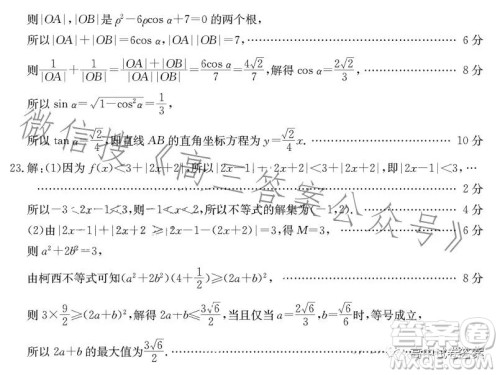 则|OA|,|OB|是ρ²-6ρcos α+7=0的两个根,
所以|OA|+|OB|=6cos α,|OA||OB|=7, …… 6分
则1/|OA|+1/|OB|=(|OA|+|OB|)/(|OA||OB|)=6cos α/7=4√2/7,解得cos α=2√2/3, …… 8分
所以sin α=√(1-cos²α)=1/3,
所以tan α=√2/4,即直线AB的直角坐标方程为y=√2/4x. …… 10分
23.解:(1)因为f(x)<3+|2x+2|,所以|x-1|+|2x+2|<3+|2x+2|,即|x-1|<3,
…… 2分
所以-3<2x-1<3,则-1<x<2,所以不等式的解集为(-1,2). …… 4分
(2)由|2x-1|+|2x+2|≥|2x-1-(2x+2)|=3,得M=3, …… 6分
则a²+2b²=3,
由柯西不等式可知(a²+2b²)(4+1/2)≥(2a+b)², …… 8分
则3×9/2≥(2a+b)²,解得2a+b≤3√6/2,当且仅当a=2√6/3,b=√6/6时,等号成立,
所以2a+b的最大值为3√6/2.
微信搜《高三答案公众号》